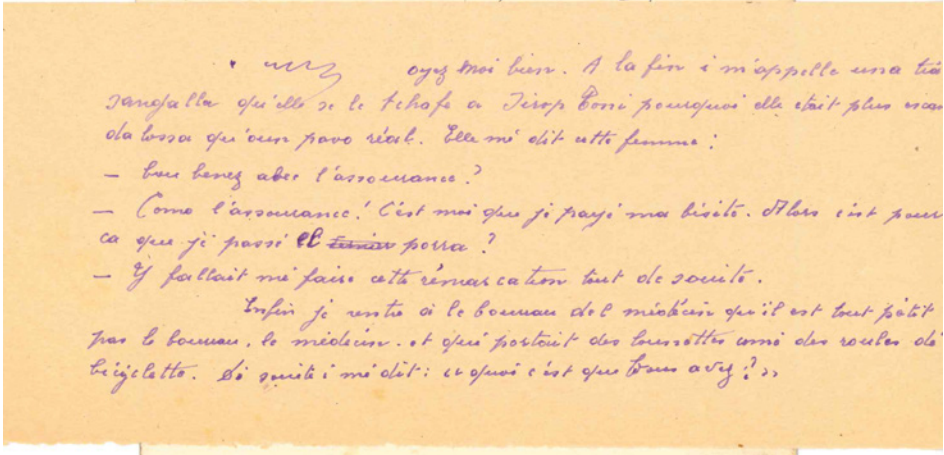 oyez moi bien. A la fin i m'appelle una tia
sangalla qu'elle se le tchafe a Sirop Toni pourquoi elle était plus escan
dalossa qu'oun pavo réal. Elle mé dit cette femme :
– bou benez abec l'assourance ?
– Como l'assourance ! C'est moi que jé payé ma bisite. Alors c'est pour
ca que jé passé el porra ?
– Y fallait mé faire cette rémarcation tout de souite.
Enfin je rentre à le boureau del médécin qu'il est tout pétit
pas le boureau, le médecin. et qui portait des loussettes comé des roules dé
bicyclette. Dé souite i mé dit : ce quoi c'est que bous avez ? »